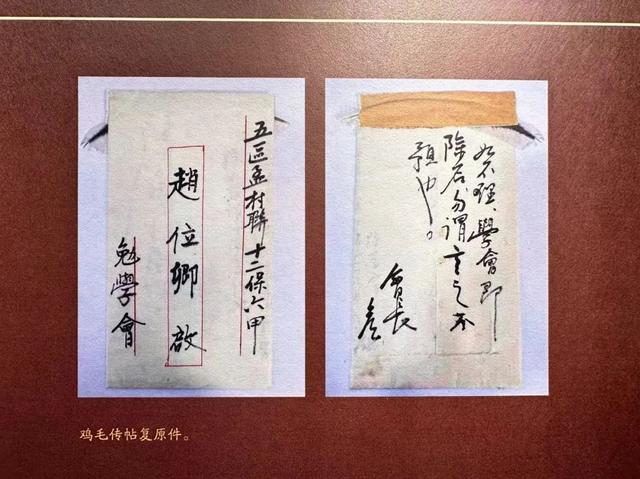 五區孟村聯十二保六甲
趙位卿啟
勉學會
如不理、學會即
除名勿謂言之不
預也。
會長
鸡毛传帖复原件。